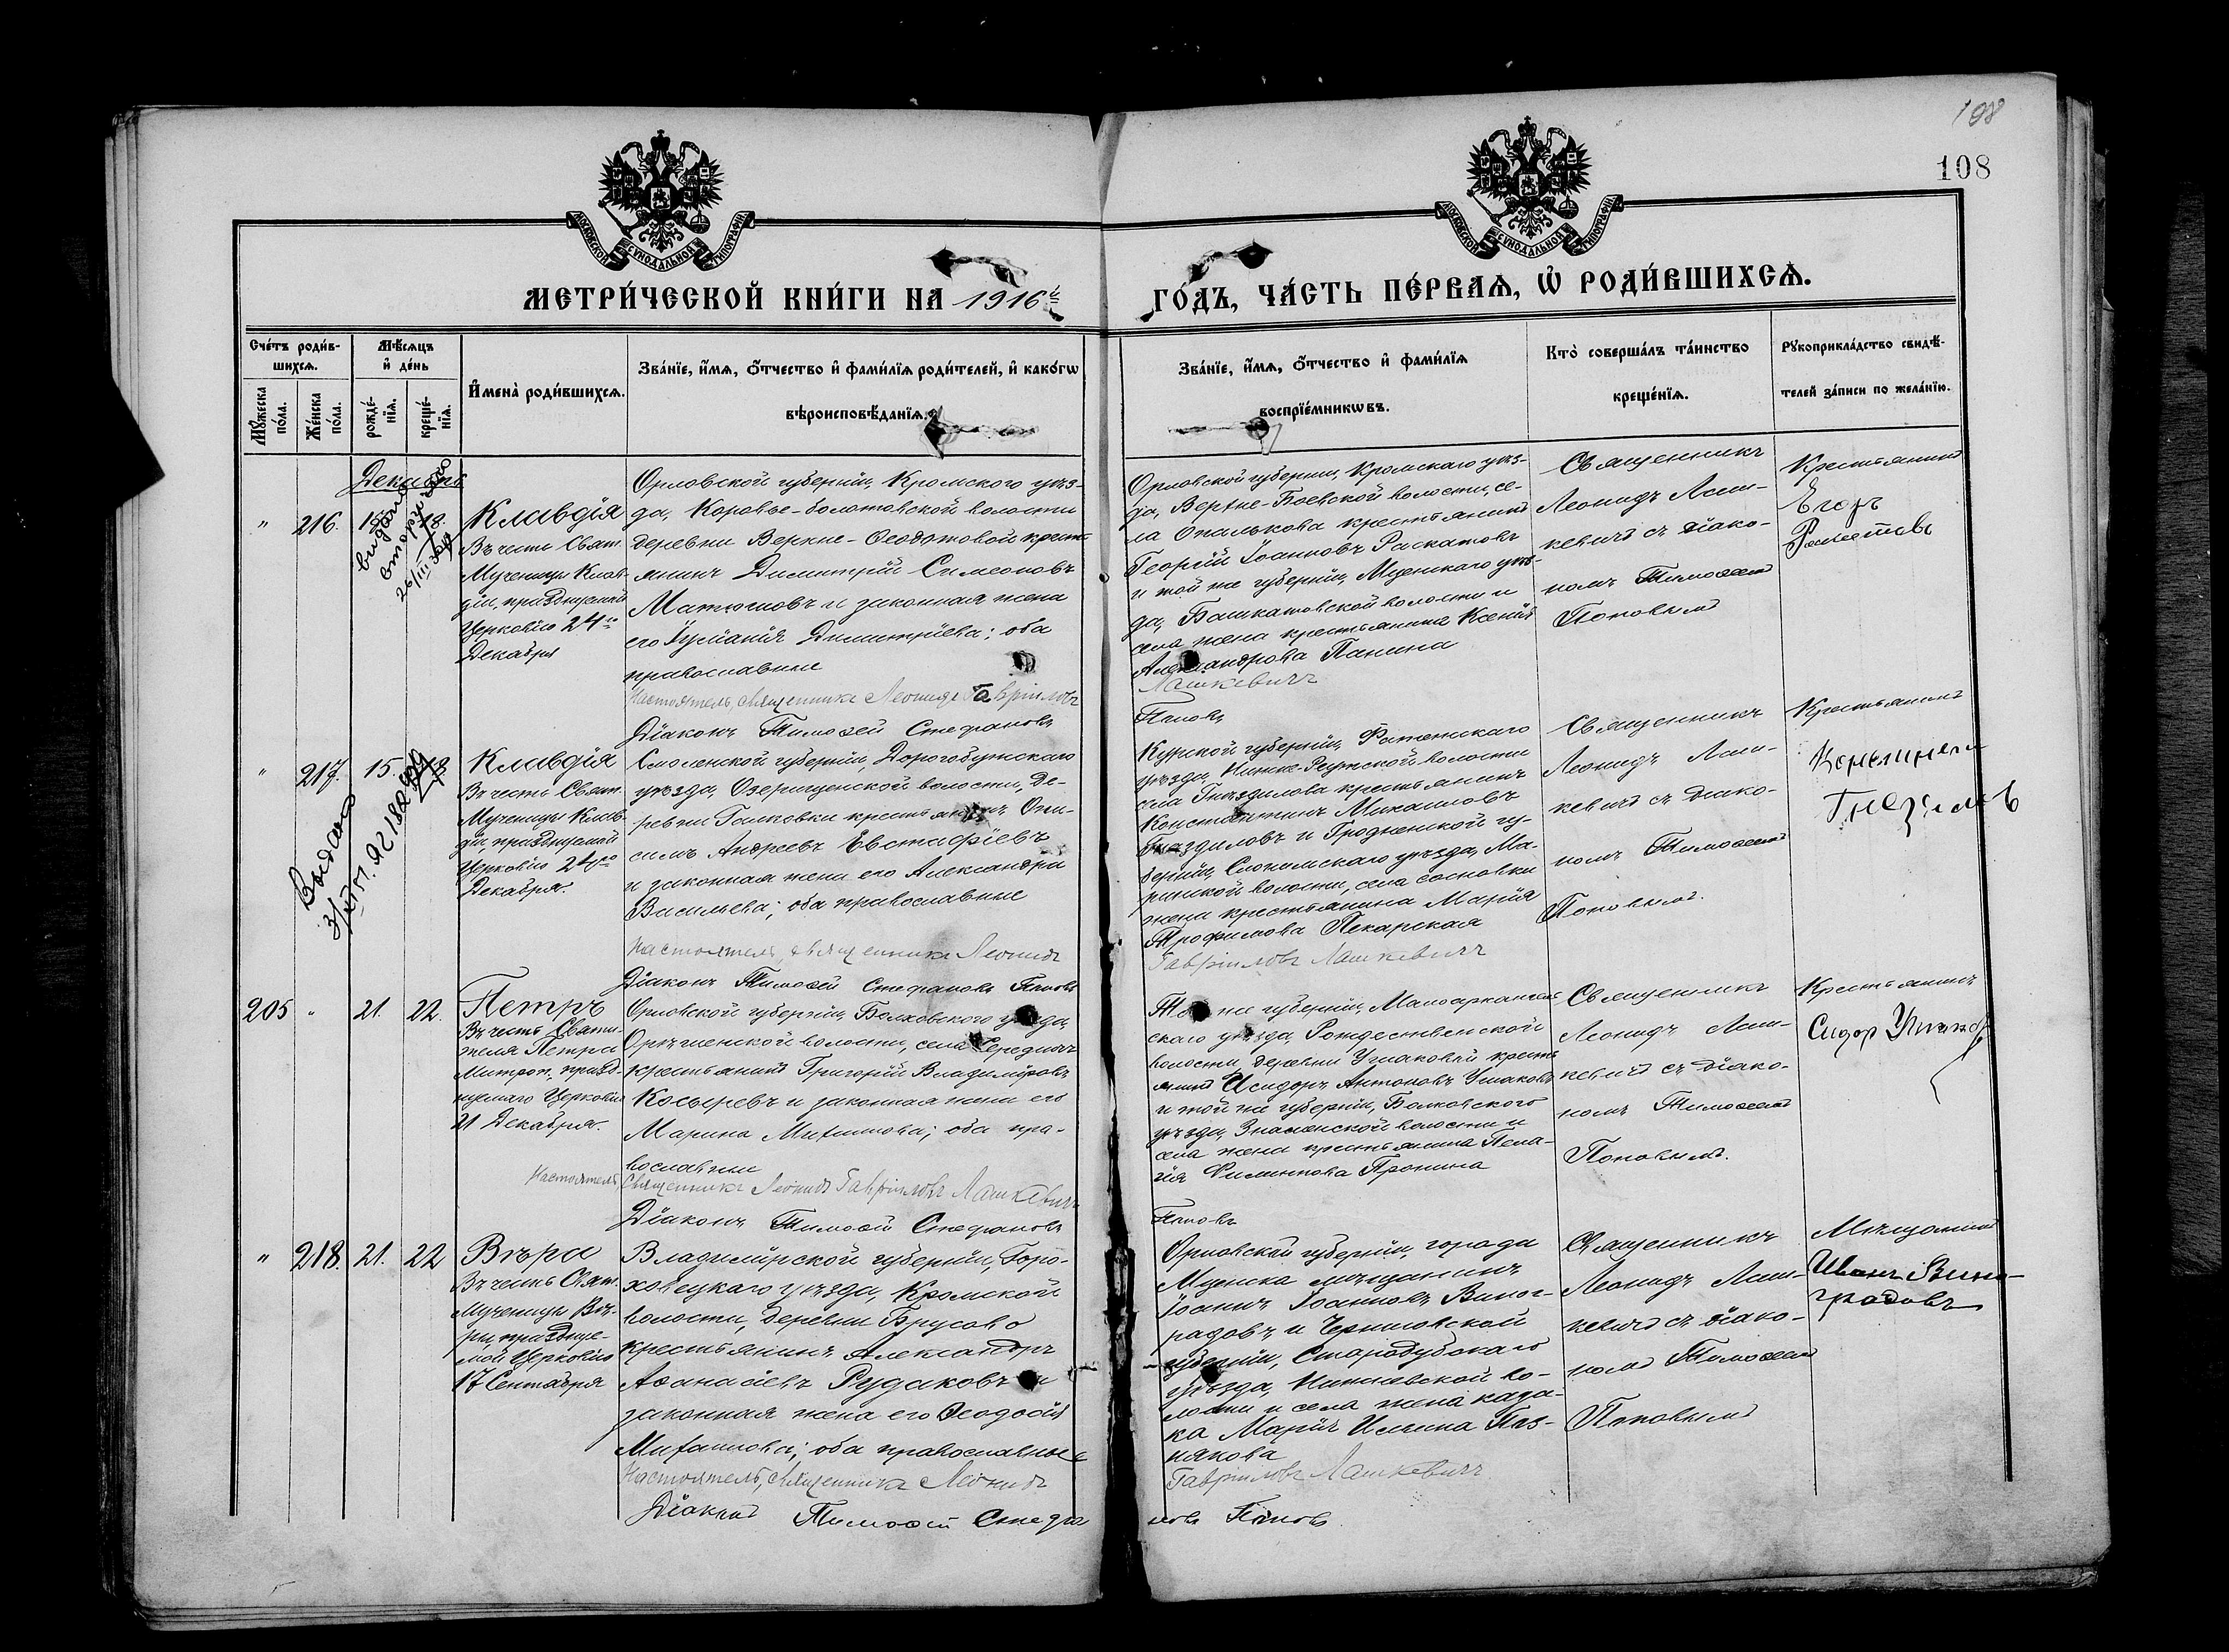 198
108
МОСКОВСКОЙ СѴНОДАЛЬНОЙ ТИПОГРАФІИ
МОСКОВСКОЙ СѴНОДАЛЬНОЙ ТИПОГРАФІИ
МЕТРИ́ЧЕСКОЙ КНИ́ГИ НА 1916й
ГО́ДЪ, ЧА́СТЬ ПЕ́РВАѦ, Ѽ РОДИ́ВШИХСѦ.
Сче́тъ роди́в-
шихсѧ.
Мꙋ́жеска по́ла.
Же́нска по́ла.
Мѣ́сѧцъ
и҆ де́нь
рожде́-
нїѧ.
креще́-
нїѧ.
И҆мена̀ роди́вшихсѧ.
Зва́нїе, и҆́мѧ, ѻ҆́тчество и҆ фами́лїѧ роди́телей, и҆ како́гѡ
вѣроисповѣ́данїѧ.
Зва́нїе, и҆́мѧ, ѻ҆́тчество и҆ фами́лїѧ
воспрїе́мникѡвъ.
Кто̀ соверша́лъ та́инство
креще́нїѧ.
Рꙋкоприкла́дство свидѣ́-
телей за́писи по жела́нїю.
Декабрь
" 216. 15. 18.
Клавдія
Въ честь Свят.
Мученицы Клав-
діи, празднуемой
Церковію 24го
Декабря
Орловской губерніи, Кромского уѣз-
да, Коровье-болотовской волости
деревни Верхне-Ѳедотовой крест-
янинъ Димитрій Симеоновъ
Матюшовъ и законная жена
его Іуліанія Димитріева; оба
православные
Настоятель, священникъ Леонидъ Гавріиловъ
Діаконъ Тимоѳей Стефановъ
Орловской губерніи, Кромскаго уѣз-
да, Верхне-Боевской волости, се-
ла Опалькова крестьянинъ
Георгій Іоанновъ Раскатовъ
и той же губерніи, Мценскаго уѣз-
да, Башкатовской волости и
села жена крестьянина Ксенія
Александрова Панина
Лашкевичъ
Поповъ
Священникъ
Леонидъ Лаш-
кевичъ съ діако-
номъ Тимоѳеемъ
Поповымъ
Крестьянинъ
Егоръ
" 217. 15. 18
Выдано
Клавдія
Въ честь Свят.
Мученицы Клав-
діи, празднуемой
Церковію 24го
Декабря.
Смоленской губерніи, Дорогобужскаго
уѣзда, Озерищенской волости, де-
ревни Галковки крестьянинъ Они-
симъ Андреевъ Евстафіевъ
и законная жена его Александра
Васильева; оба православные
Настоятель, священникъ Леонидъ
Діаконъ Тимоѳей Стефановъ Поповъ
Курской губерніи, Фатежскаго
уѣзда, Нижне-Реутской волости
села Гнѣздилова крестьянинъ
Константинъ Михаиловъ
Гнѣздиловъ и Гродненской гу-
берніи, Слонимскаго уѣзда, Ма-
ринской волости, села Сосновки
жена крестьянина Марія
Трофимова Пекарская
Гавріиловъ Лашкевичъ
Священникъ
Леонидъ Лаш-
кевичъ съ діако-
номъ Тимоѳеемъ
Поповымъ.
Крестьянинъ
205 " 21. 22.
Петръ
Въ честь Святи-
теля Петра
Митроп., празд-
нуемаго Церковію
21 Декабря.
Орловской губерніи, Болховского уѣзда,
Орѣшенской волости, села Середичъ
крестьянинъ Григорій Владиміровъ
Косыревъ и законная жена его
Марина Михаилова; оба пра-
вославные
Настоятель, Священникъ Леонидъ Гавріиловъ Лашкевичъ
Діаконъ Тимоѳей Стефановъ
Той же губерніи, Малоархангель-
скаго уѣзда, Рождественской
волости, деревни Ушаковой кресть-
янинъ Исидоръ Антоновъ Ушаковъ
и той же губерніи, Болховского
уѣзда, Знаменской волости и
села жена крестьянина Пела-
гія Филиппова Пронина
Поповъ
Священникъ
Леонидъ Лаш-
кевичъ съ діако-
номъ Тимоѳеемъ
Поповымъ.
Крестьянинъ
Сидор Ушаков
" 218. 21. 22
Вѣра
Въ честь Свят.
Мученицы Вѣ-
ры, праздnuе-
мой Церковію
17 Сентября
Владимірской губерніи, Горо-
ховецкаго уѣзда, Кромской
волости, деревни Брусово
крестьянинъ Александръ
Аѳанасіевъ Рудаковъ и
законная жена его Ѳеодосія
Михаилова; оба православные
Настоятель, священникъ Леонидъ
Діаконъ Тимоѳей Стефа
Орловской губерніи, города
Мценска мѣщанинъ
Іоаннъ Іоанновъ Виног-
радовъ и Черниговской
губерніи, Стародубскаго
уѣзда, волости и села жена каза-
ка Марія Ильина Поз-
някова
Гавріиловъ Лашкевичъ
новъ Поповъ
Священникъ
Леонидъ Лаш-
кевичъ съ діако-
номъ Тимоѳеемъ
Поповымъ
Мѣщанинъ
Иванъ Вино-
градовъ